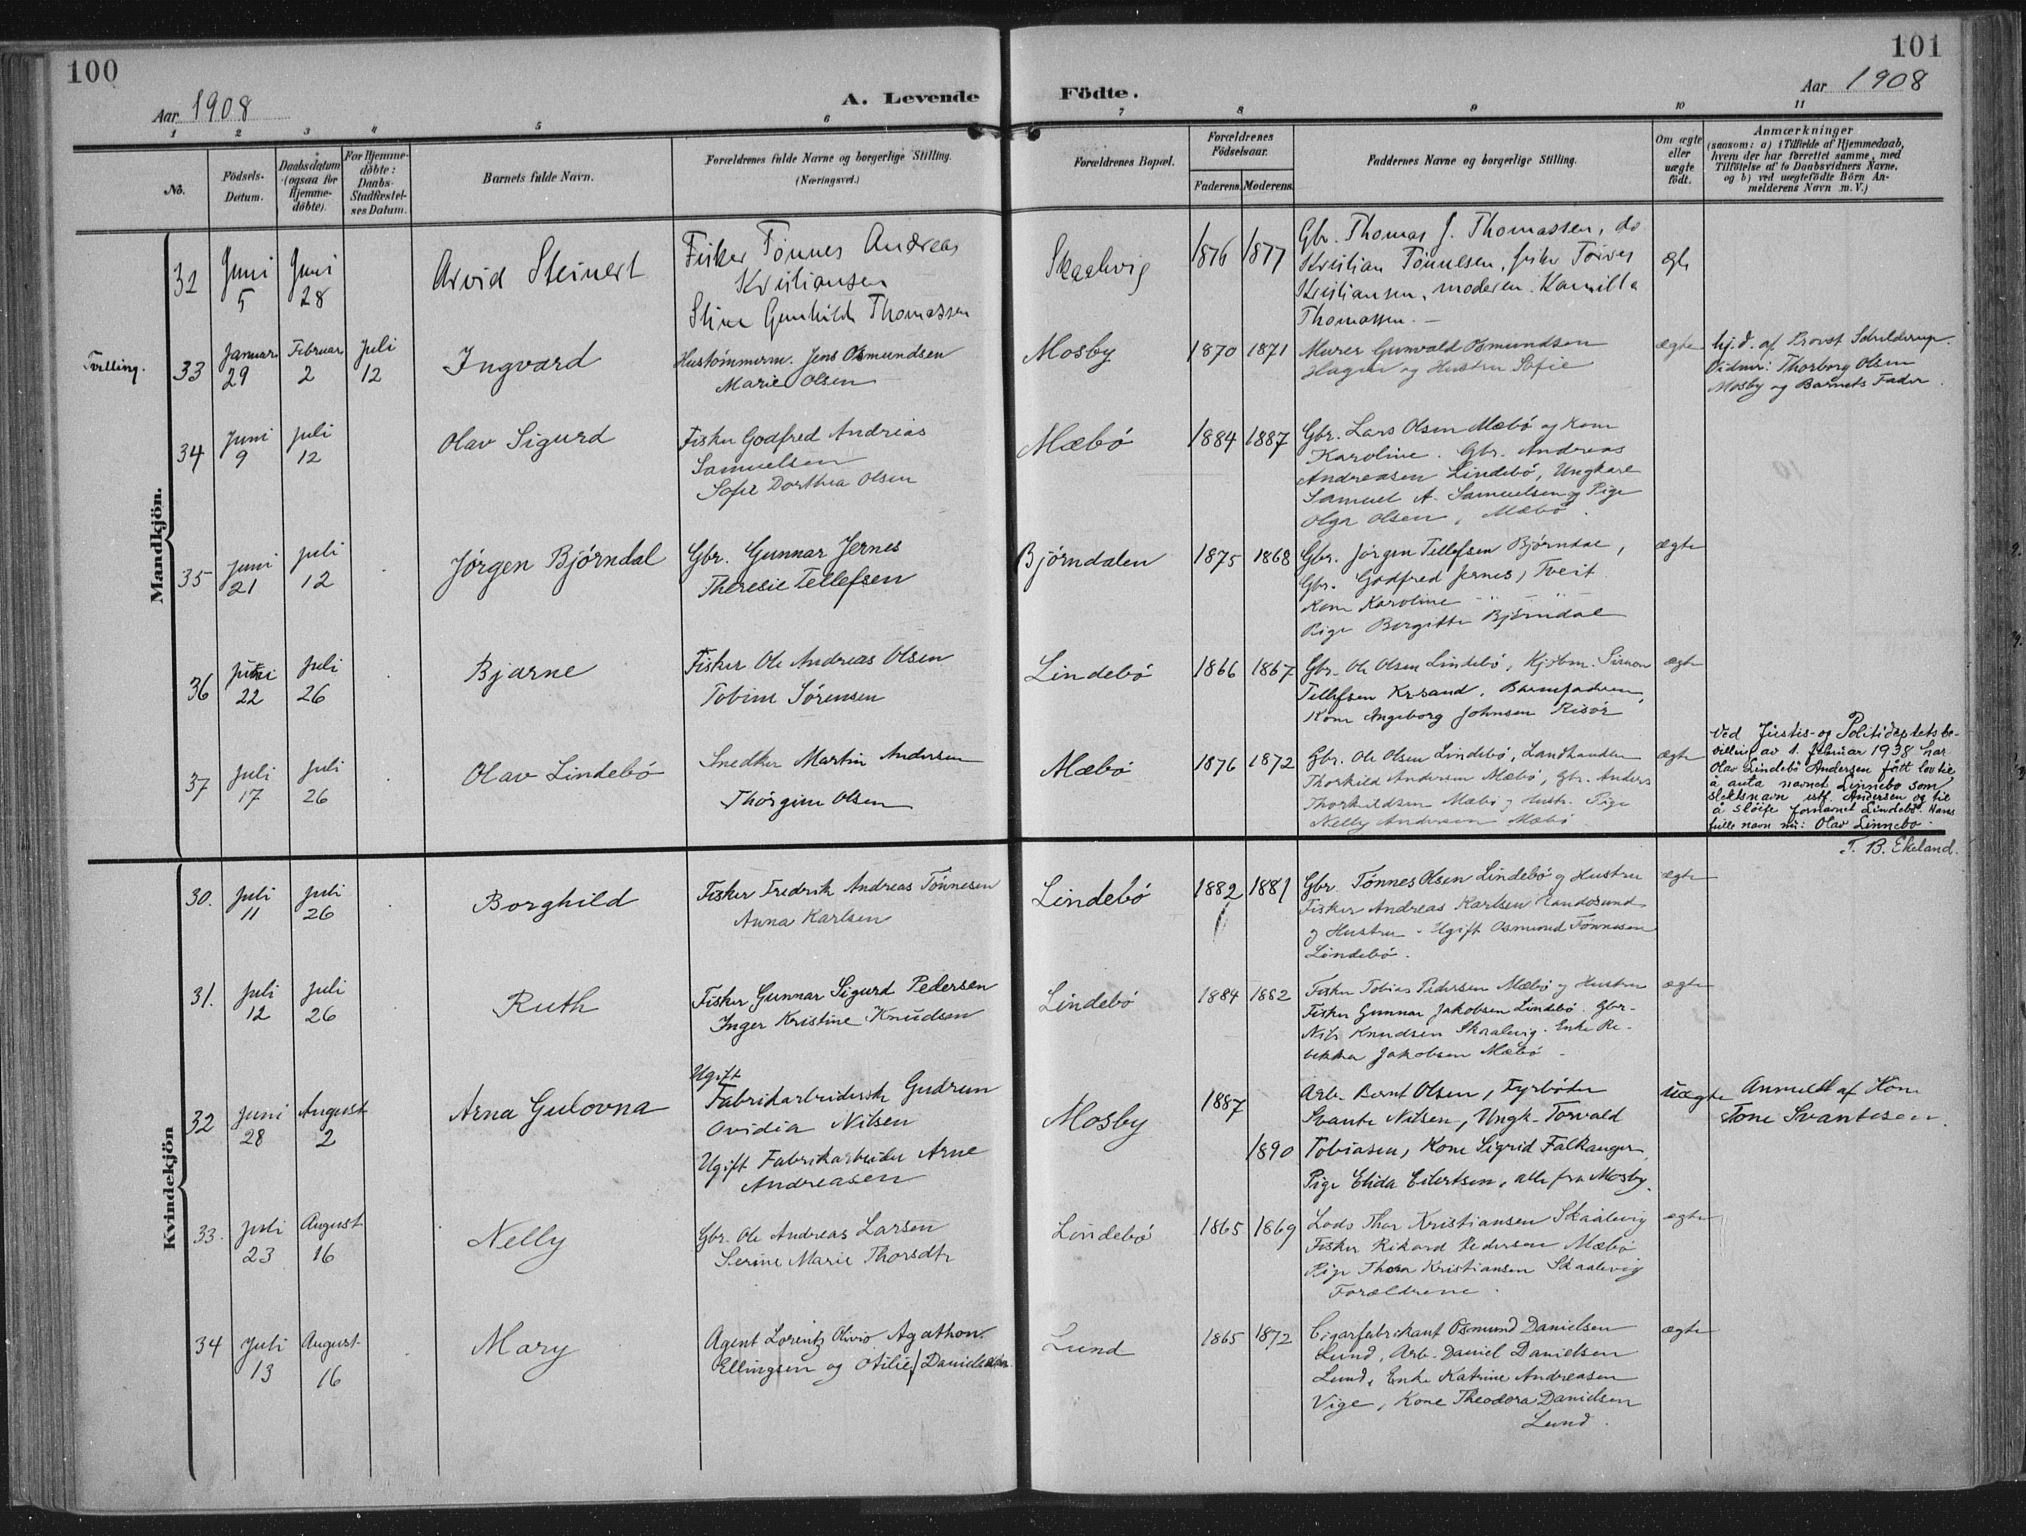 100
101
Aar 1908
A. Levende Födte.
Aar 1908
1 2 3 4 5 6 7 8 9 10 11
No.
Födsels-
Datum.
Daabsdatum
(ogsaa for
Hjemme-
döbte).
For Hjemme-
döbte:
Daabs-
Stadfæstel-
ses Datum.
Barnets fulde Navn.
Forældrenes fulde Navne og borgerlige Stilling.
(Næringsvei.)
Forældrenes Bopæl.
Forældrenes
Födselsaar.
Faderens. Moderens.
Faddernes Navne og borgerlige Stilling.
Om ægte
eller
uægte
födt.
Anmærkninger
(saasom: a) i Tilfælde af Hjemmedaab,
hvem der har forrettet samme, med
Tilföielse af to Daabsvidners Navne,
og b) ved uægtefödte Börn An-
melderens Navn m. V.)
Mandkjön.
32
Juni
5
Juni
28
Arvid Steinert
Fisker Tønnes Andreas
Kristiansen
Stine Gunhilde Thomassen
Skaalevig
1876 1877
Gbr. Thomas J. Thomassen, do
Kristian Tönnesen, fisker
Kristiansen, moderen Kamilla
Thomassen. —
ægte
Tvilling.
33
Januar
29
Februar
2
Juli
12
Ingvard
Hustømmerm. Jens Osmundsen
Marie Olsen
Mosby
1870 1871
Murer Gunvald Osmundsen
Hagen og Hustru Sofie
ægte
hj. d. af Provst Schielderup.
Vidner: Thorborg Olsen
Mosby og Barnets Fader.
34
Juni
9
Juli
12
Olav Sigurd
Fisker Godfred Andreas
Samuelsen
Sofie Dorthea Olsen
Mæbö
1884 1887
Gbr. Lars Olsen Mæbö og Kone
Karoline. Gbr. Andreas
Andreasen Lindebö, Ungkarl
Samuel A. Samuelsen og Pige
Olga Olsen, Mæbö.
35
Juni
21
Juli
12
Jørgen Bjørndal
Gbr. Gunnar Jernes
Theresie Tellefsen
Bjørndalen
1875 1868
Gbr. Jörgen Tellefsen Bjørndal,
Gbr. Godfred Jernes, Tveit
Kone Karoline " "
Pige Bergitte Bjørndal
ægte
36
Juni
22
Juli
26
Bjarne
Fisker Ole Andreas Olsen
Tobine Sørensen
Lindebö
1866 1867
Gbr. Ole Olsen Lindebö, Kjøbm. Simon
Tellefsen Krsand, Barnefaderen,
Kone Angeborg Johnsen Risör
ægte
37
Juli
17
Juli
26
Olav Lindebö
Snedker Martin Andersen
Thörgine Olsen
Mæbö
1876 1872
Gbr. Ole Olsen Lindebö, Landhandler
Thorkild Andersen Mæbö, Gbr. Anders
Thorkildsen Mæbö og Hustr. Pige
Nelly Andersen Mæbö
ægte
Ved Justis- og Politideptets be-
villing av 1. februar 1938 har
Olav Lindebö Andersen fått lov til
å anta navnet Linnebo som
slektsnavn istf. Andersen og til
å slöife fornavnet Lindebö. Hans
fulle navn nu: Olav Linnebo.
T. B. Ekeland.
Kvindekjön
30.
Juli
11
Juli
26
Borghild
Fisker Fredrik Andreas Tönnesen
Anna Karlsen
Lindebö
1882 1881
Gbr. Tönnes Olsen Lindebö og Hustru
Fisker Andreas Karlsen Randösund
og Hustru. Ugift Osmund Tønnesen
Lindebö.
ægte
31.
Juli
12
Juli
26
Ruth
Fisker Gunnar Sigurd Pedersen
Inger Kristine Knudsen
Lindebö
1884 1882
Fisker Tobias Pedersen Mæbö og Hustru
Fisker Gunnar Jakobsen Lindebö. Gbr.
Nils Knudsen Skaalevig. Enke Re-
bekka Jakobsen Mæbö.
ægte
32
Juni
28
August
2
Arna Gulovna
Ugift
Fabrikarbeiderske Gudrun
Ovidia Nilsen
Ugift Fabrikarbeider Arne
Andreasen
Mosby
1887
1890
Arb. Bernt Olsen, Fyrbøder
Svante Nilsen, Ungk. Torvald
Tobiasen, Kone Sigrid Falkanger,
Pige Elida Eilertsen, alle fra Mosby.
uægte
Anmeldt af Kone
Tone Svantesen.
33.
Juli
23
August
16
Nelly
Gbr. Ole Andreas Larsen
Serine Marie Thorsdtr
Lindebö
1865 1869
Lods Thor Kristiansen Skaalevig
Fisker Rikard Pedersen Mæbö
Pige Thora Kristiansen Skaalevig
Forældrene.
ægte
34
Juli
13
August
16
Mary
Agent Lorentz Olivio Agathon
Ellingsen og Otilie Danielsen
Lund
1865 1872
Cigarfabrikant Osmund Danielsen
Lund, Arb. Daniel Danielsen
Lund, Enke Katrine Andreasen
Vige, Kone Theodora Danielsen
Lund.
ægte